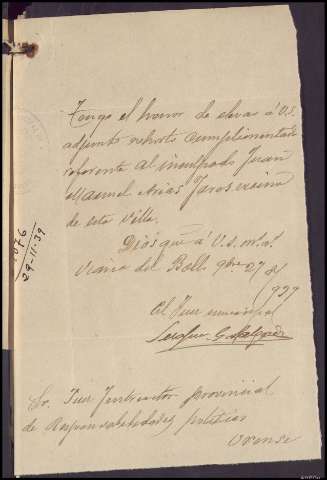 Tengo el honor de elevar á V.S.
adjunto exhorto cumplimentado
referente al inculpado Juan
Manuel Arias Taros vecino
de esta villa.
Dios gue á V.S. m. a.
Viana del Bollo 9bre 27 de
1939
El Juez municipal
Sr. Juez Instructor provincial
de Responsabilidades políticas
Orense
1076
29-11-39